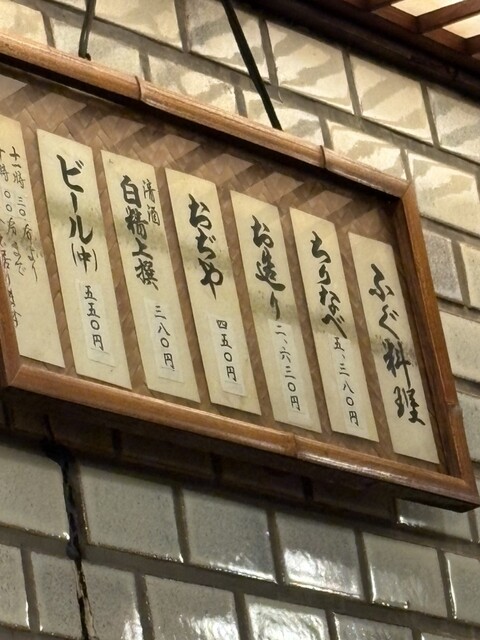 ふぐ料理
ちりなべ 五、三八〇円
お造り 二、六三〇円
おぢや 四五〇円
清酒
白鶴上撰 三八〇円
ビール(中) 五五〇円
十一時三〇